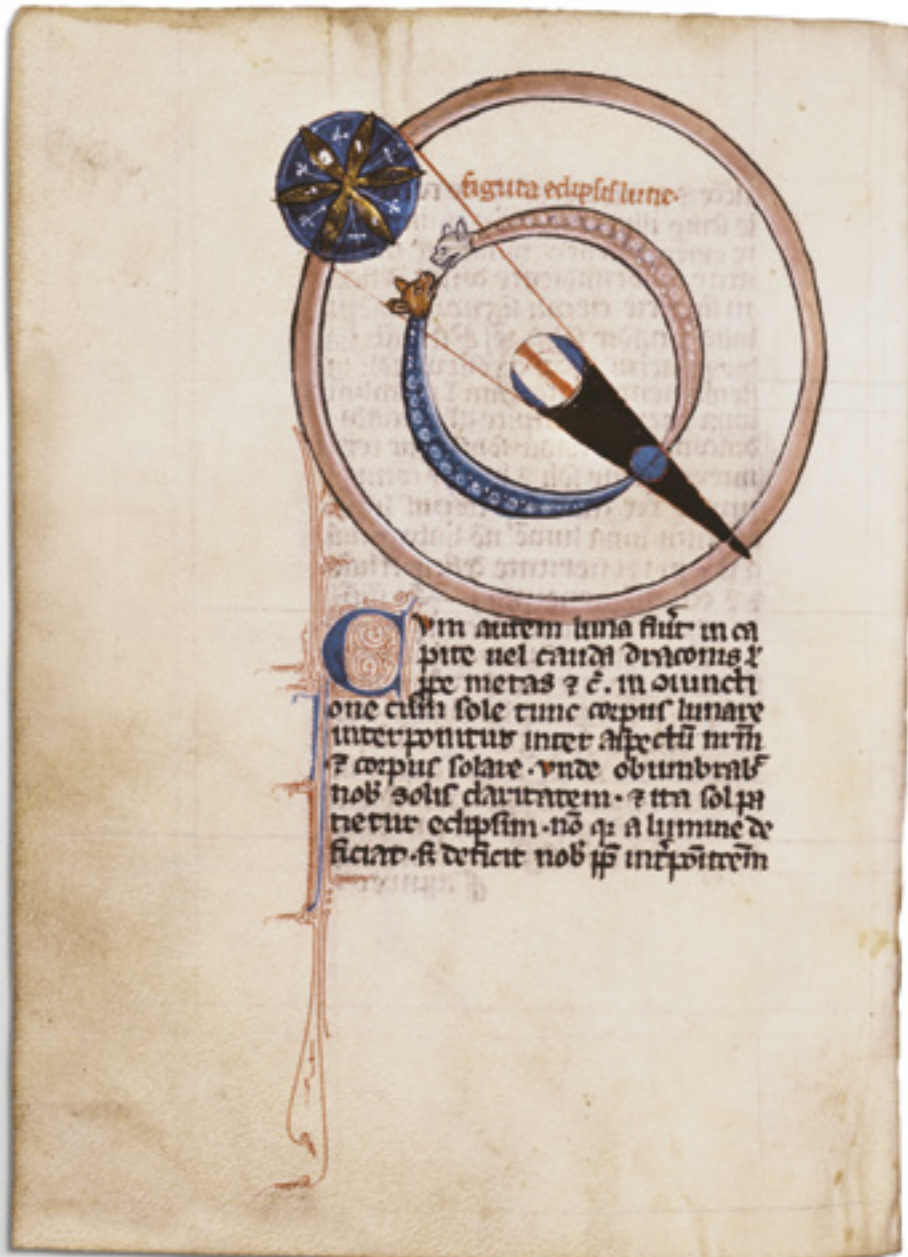 figura eclipsis lune·
Cvm autem luna fiũt in ca
pite uel cauda draconis ł
ꝓpe metas ⁊ c̃. in ɔiuncti
one cum sole tunc corpus lunare
interponitur inter aspectũ nr̃m
⁊ corpus solare· vnde obumbrab̃
nob̃ solis claritatem· ⁊ ita sol pa
tietur eclipsim· nõ qꝛ a lumine de
ficiat· sꝫ deficit nob̃ ꝓp̃